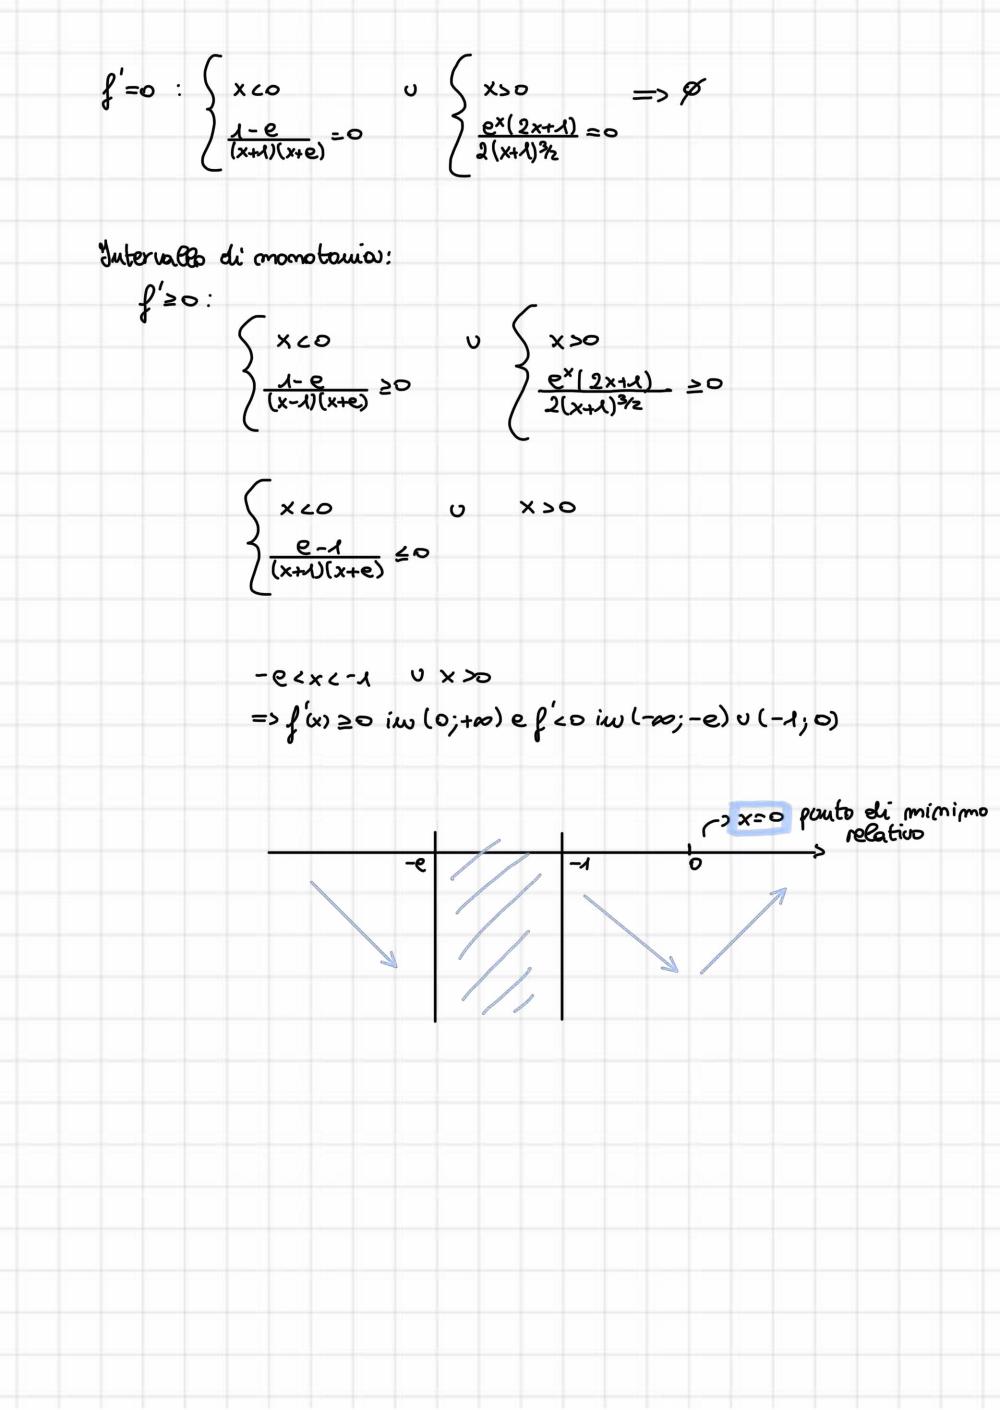 f'=0 : { x<0 ∪ { x>0 => ∅
(1-e)/((x+1)(x+e)) =0 (e^x(2x+1))/(2(x+1)^3/2) =0
Intervallo di monotonia:
f'≥0 :
{ x<0 ∪ { x>0
(1-e)/((x-1)(x+e)) ≥0 (e^x(2x+1))/(2(x+1)^3/2) ≥0
{ x<0 ∪ x>0
(e-1)/((x+1)(x+e)) ≤0
-e<x<-1 ∪ x>0
=> f'(x) ≥0 in (0;+∞) e f'<0 in (-∞;-e) ∪ (-1;0)
→ x=0 punto di minimo
relativo
-e -1 0